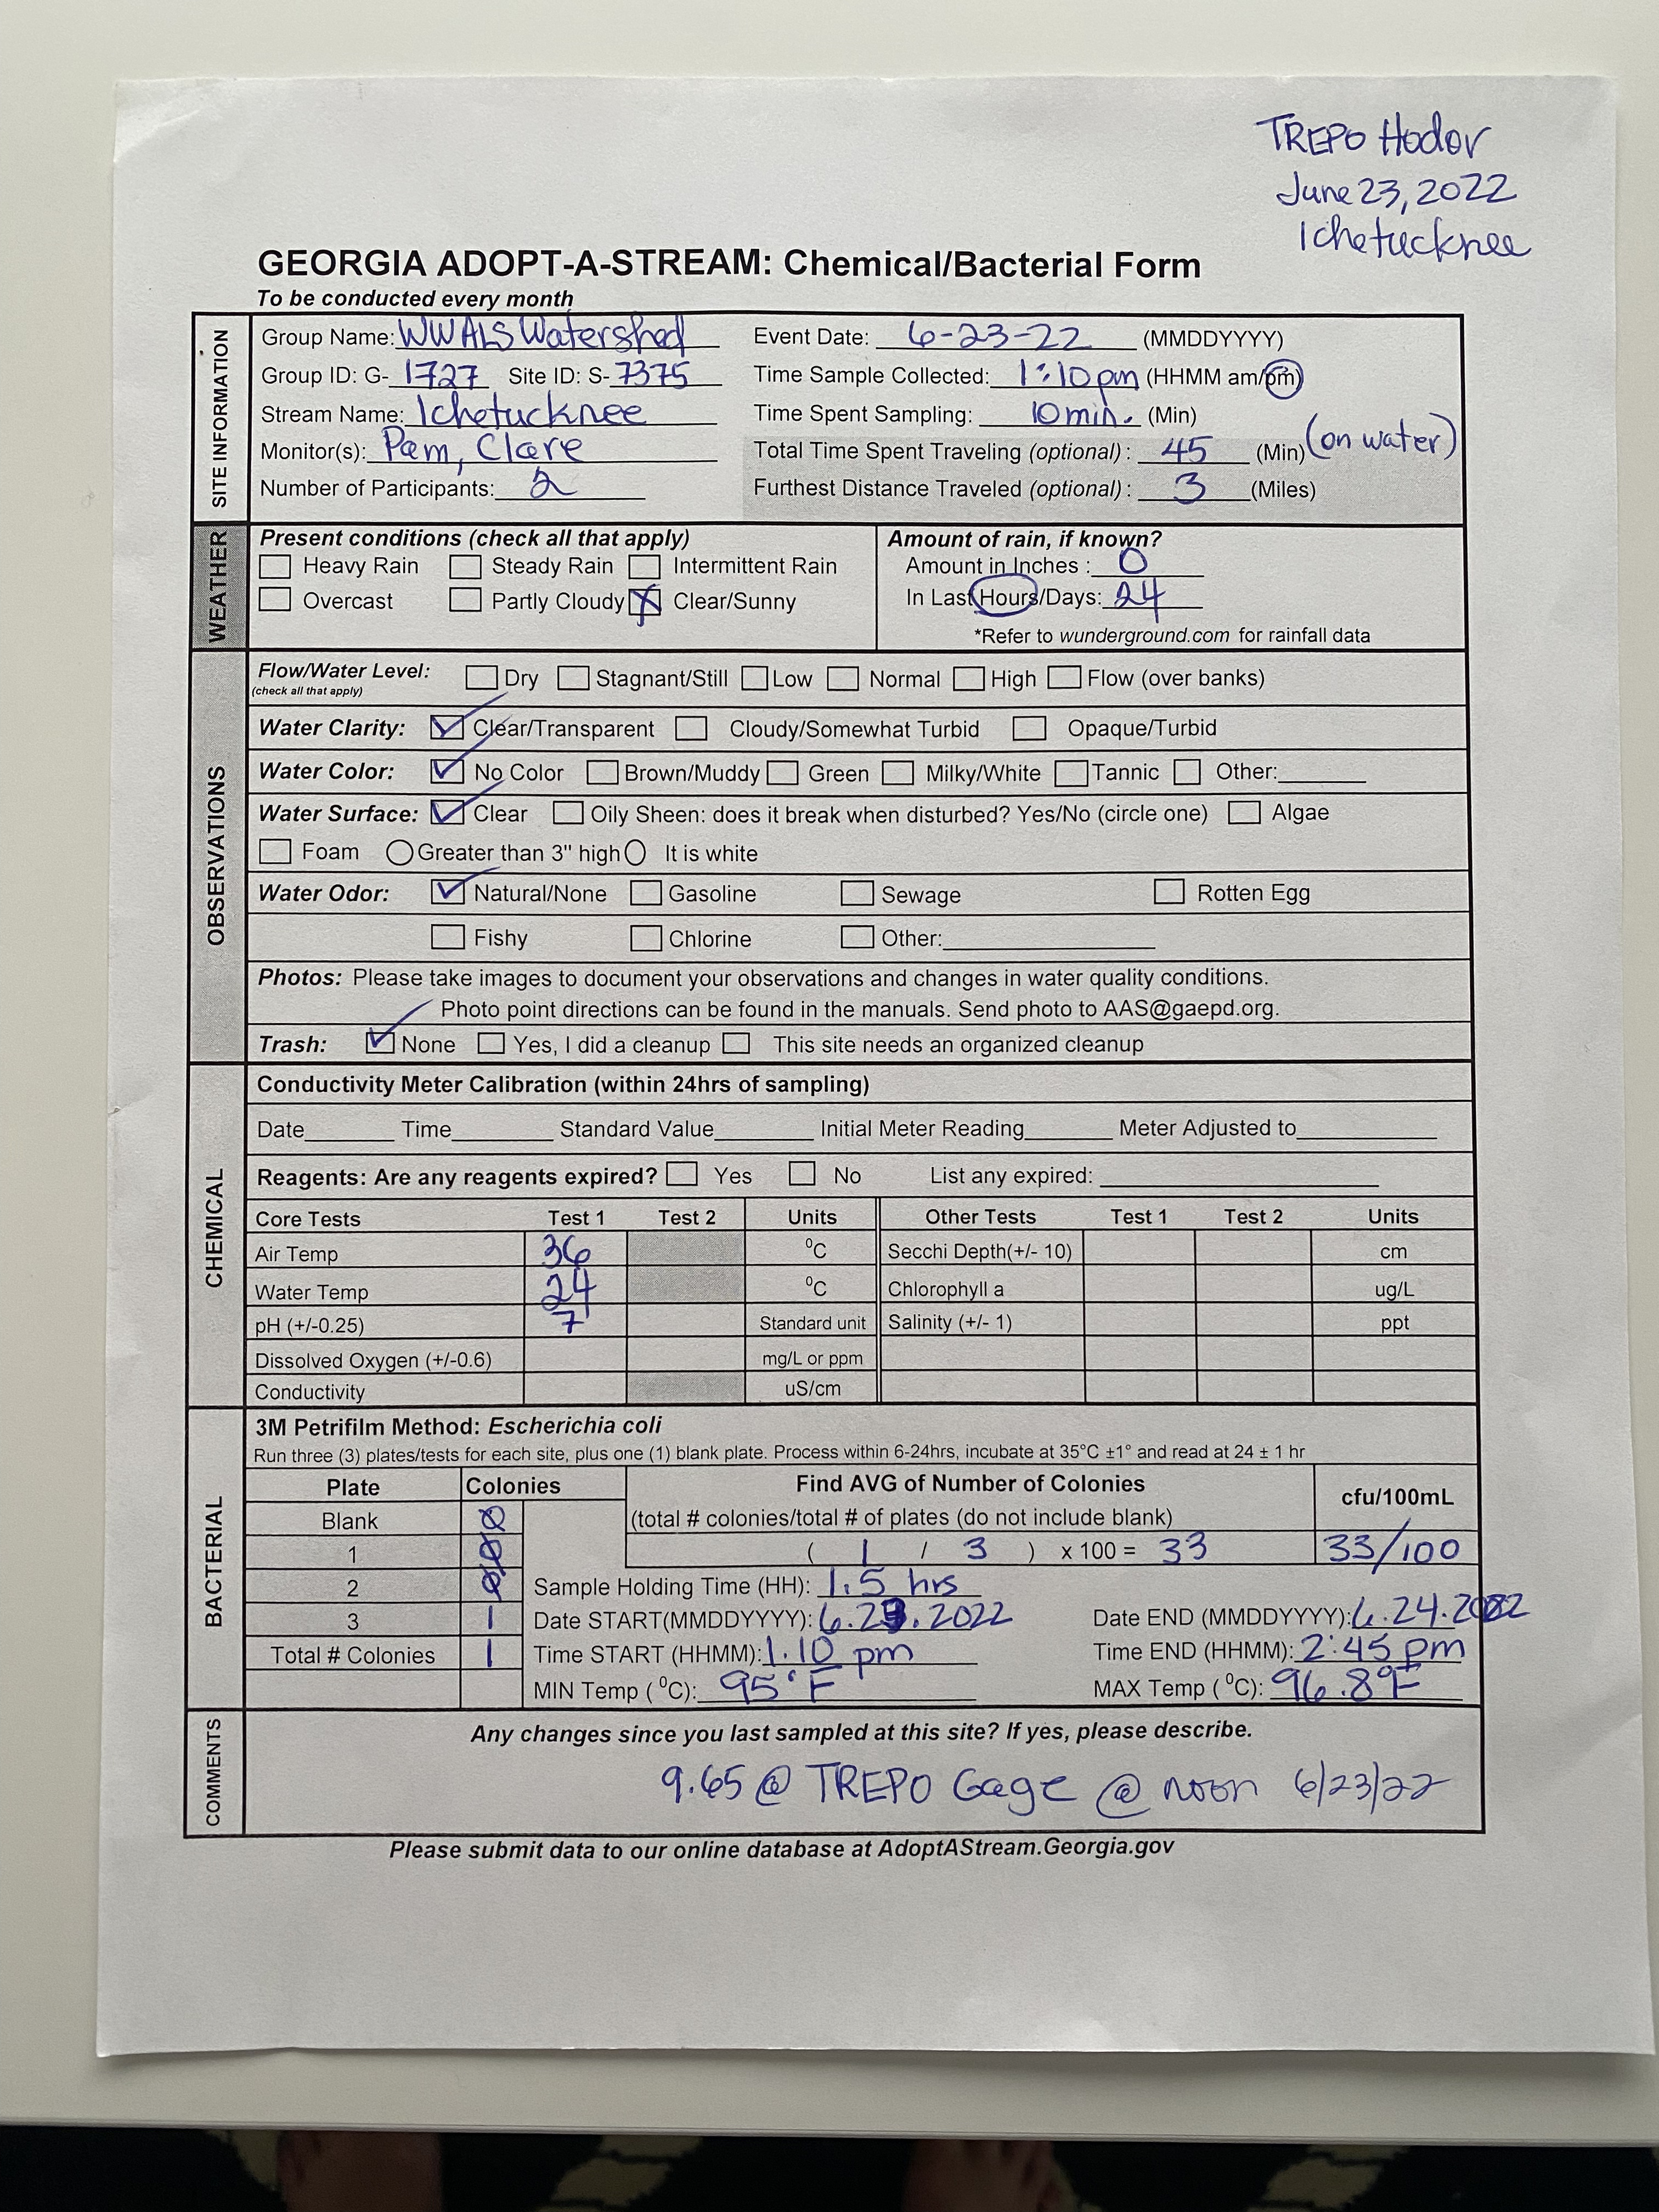 TREPO Hodor
June 23, 2022
Ichetucknee
GEORGIA ADOPT-A-STREAM: Chemical/Bacterial Form
To be conducted every month
SITE INFORMATION
Group Name: WWALS Watershed Event Date: 6-23-22 (MMDDYYYY)
Group ID: G- 1727 Site ID: S- 7375 Time Sample Collected: 1:10 pm (HHMM am/pm)
Stream Name: Ichetucknee Time Spent Sampling: 10 min. (Min)
Monitor(s): Pam, Clare Total Time Spent Traveling (optional) : 45 (Min) (on water)
Number of Participants: 2 Furthest Distance Traveled (optional) : 3 (Miles)
WEATHER
Present conditions (check all that apply) Amount of rain, if known?
Heavy Rain Steady Rain Intermittent Rain Amount in Inches : 0
Overcast Partly Cloudy X Clear/Sunny In Last Hours/Days: 24
*Refer to wunderground.com for rainfall data
OBSERVATIONS
Flow/Water Level: Dry Stagnant/Still Low Normal High Flow (over banks)
(check all that apply)
Water Clarity: ✓ Clear/Transparent Cloudy/Somewhat Turbid Opaque/Turbid
Water Color: ✓ No Color Brown/Muddy Green Milky/White Tannic Other:
Water Surface: ✓ Clear Oily Sheen: does it break when disturbed? Yes/No (circle one) Algae
Foam Greater than 3" high It is white
Water Odor: ✓ Natural/None Gasoline Sewage Rotten Egg
Fishy Chlorine Other:
Photos: Please take images to document your observations and changes in water quality conditions.
Photo point directions can be found in the manuals. Send photo to AAS@gaepd.org.
Trash: ✓ None Yes, I did a cleanup This site needs an organized cleanup
CHEMICAL
Conductivity Meter Calibration (within 24hrs of sampling)
Date Time Standard Value Initial Meter Reading Meter Adjusted to
Reagents: Are any reagents expired? Yes No List any expired:
Core Tests Test 1 Test 2 Units Other Tests Test 1 Test 2 Units
Air Temp 36 °C Secchi Depth(+/- 10) cm
Water Temp 24 °C Chlorophyll a ug/L
pH (+/-0.25) 7 Standard unit Salinity (+/- 1) ppt
Dissolved Oxygen (+/-0.6) mg/L or ppm
Conductivity uS/cm
BACTERIAL
3M Petrifilm Method: Escherichia coli
Run three (3) plates/tests for each site, plus one (1) blank plate. Process within 6-24hrs, incubate at 35°C ±1° and read at 24 ± 1 hr
Plate Colonies Find AVG of Number of Colonies cfu/100mL
Blank 0 (total # colonies/total # of plates (do not include blank)
1 0 ( 1 / 3 ) x 100 = 33 33/100
2 0 Sample Holding Time (HH): 1.5 hrs
3 1 Date START(MMDDYYYY): 6.23.2022 Date END (MMDDYYYY): 6.24.2022
Total # Colonies 1 Time START (HHMM): 1.10 pm Time END (HHMM): 2:45 pm
MIN Temp (°C): 95°F MAX Temp (°C): 96.8°F
COMMENTS
Any changes since you last sampled at this site? If yes, please describe.
9.65 @ TREPO Gage @ noon 6/23/22
Please submit data to our online database at AdoptAStream.Georgia.gov